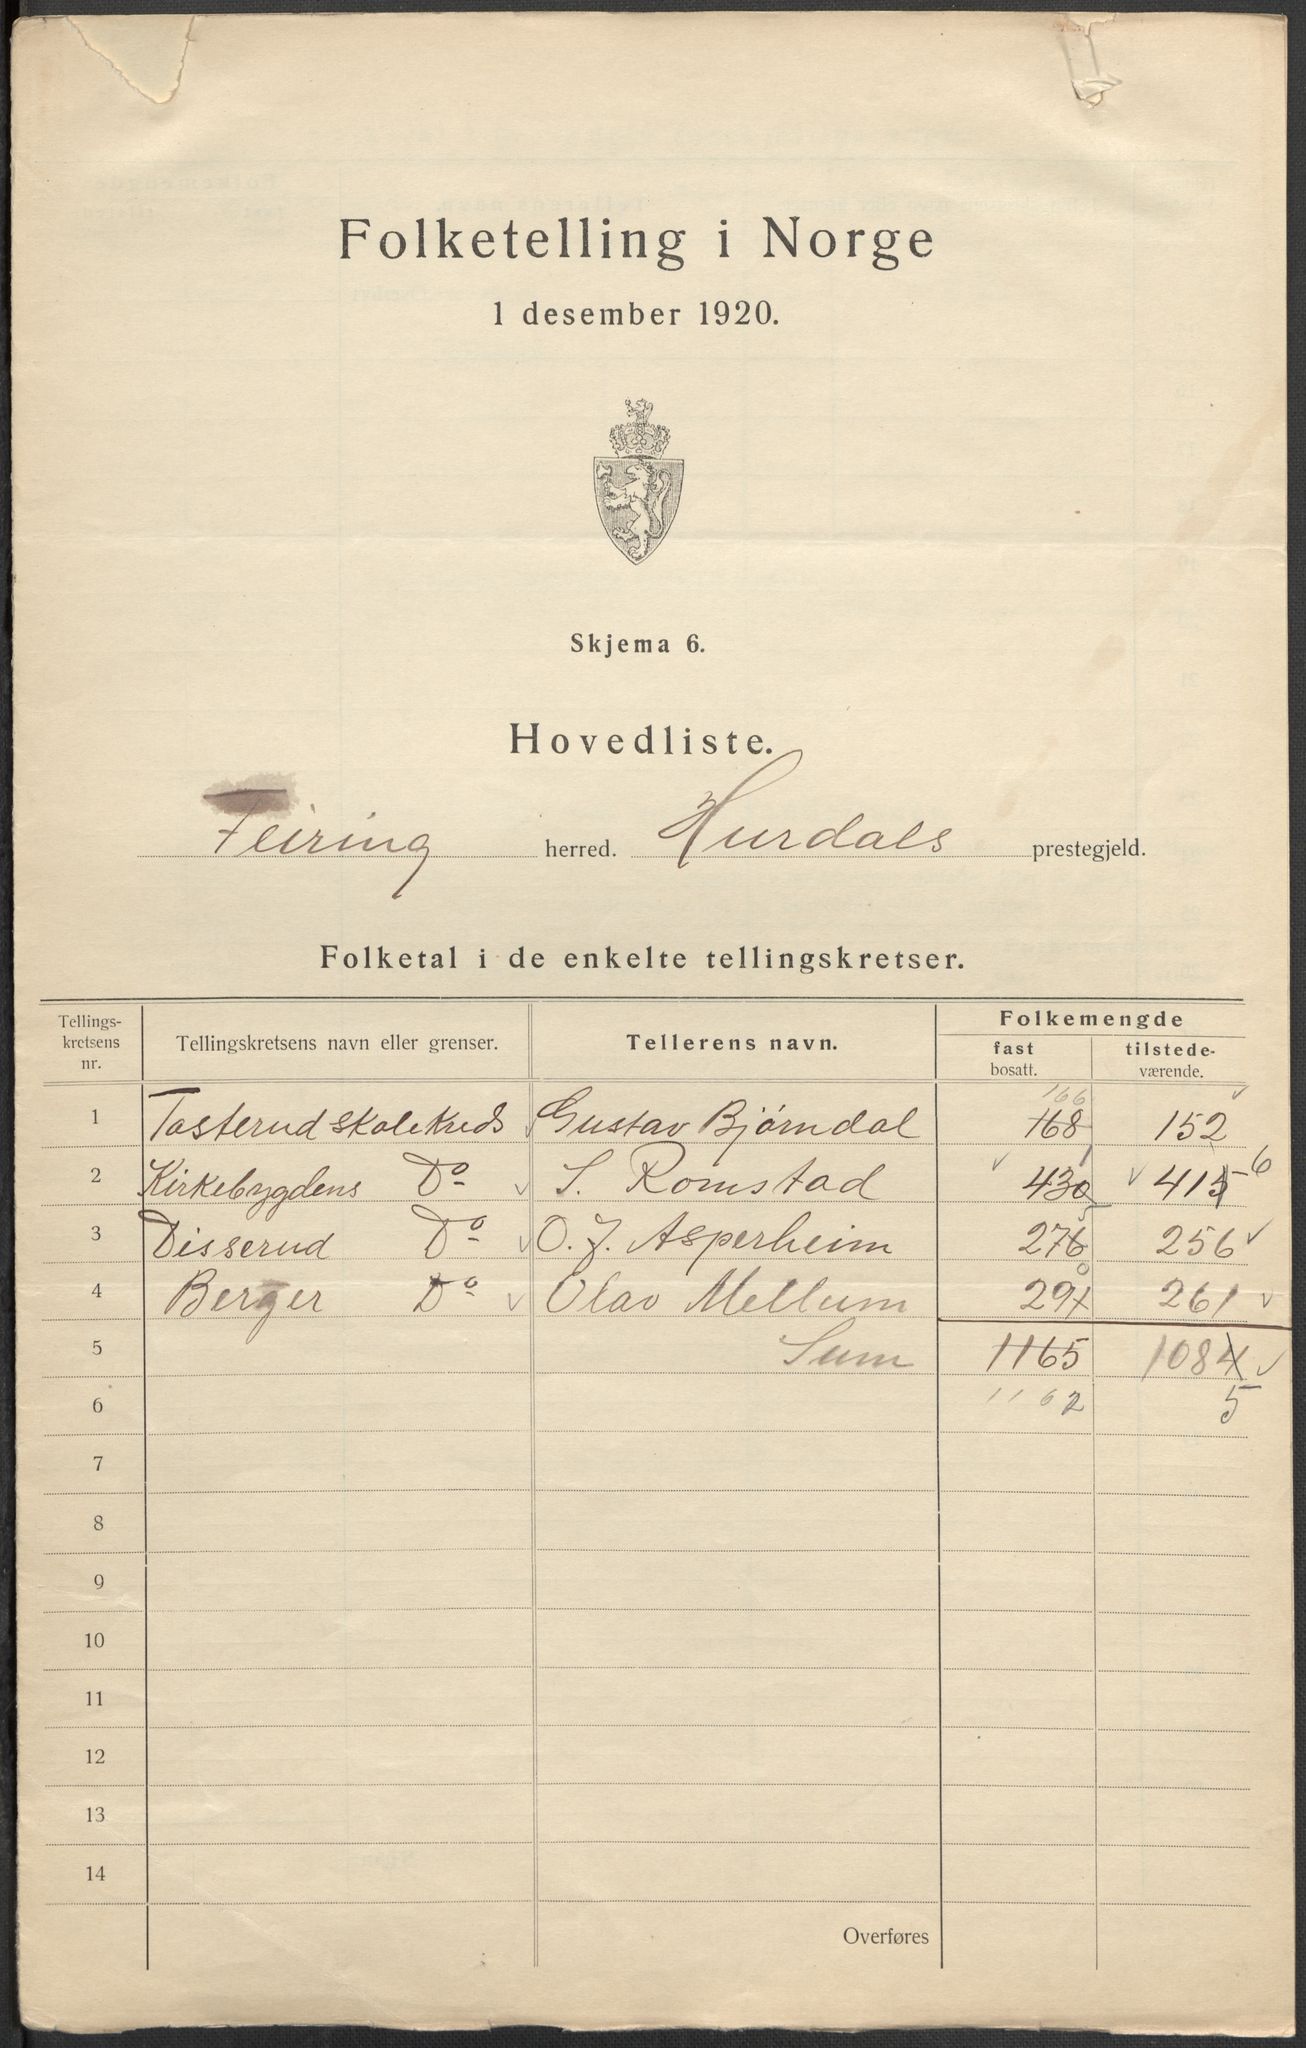 Folketelling i Norge
1 desember 1920.
Skjema 6.
Hovedliste.
Feiring herred. Hurdals prestegjeld.
Folketal i de enkelte tellingskretser.
Tellings-
kretsens
nr.
Tellingskretsens navn eller grenser.
Tellerens navn.
Folkemengde
fast
bosatt.
tilstede-
værende.
166
1 Tosterud skolekreds Gustav Bjørndal 168 152
1
2 Kirkebygdens Do S. Romstad 430 415 6
5
3 Disserud Do O. J. Asperheim 276 256
0
4 Berger Do Olav Mellum 291 261
5 Sum 1165 1084
6 1162 5
7
8
9
10
11
12
13
14
Overføres